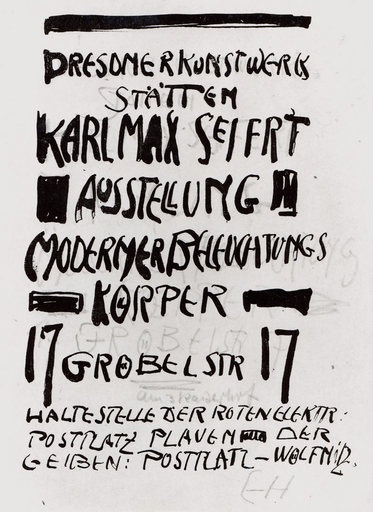 DRESDNER KUNSTWERK
STÄTTEN
KARL MAX SEIFRT
AUSSTELLUNG
MODERNER BELEUCHTUNGS
KÖRPER
17 GROBELSTR 17
HALTESTELLE DER ROTEN ELEKTR:
POSTPLATZ PLAUEN DER
GELBEN: POSTPLATZ-WÖLFNITZ.
EH